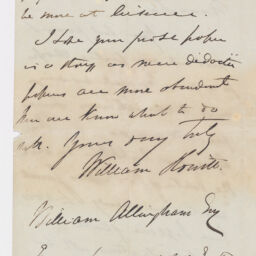 be more at leisure.
I hope your prose paper
is a story as mere didactic
papers are more abundant
than we know what to do
with. Yours very truly
William Howitt.
William Allingham Esq